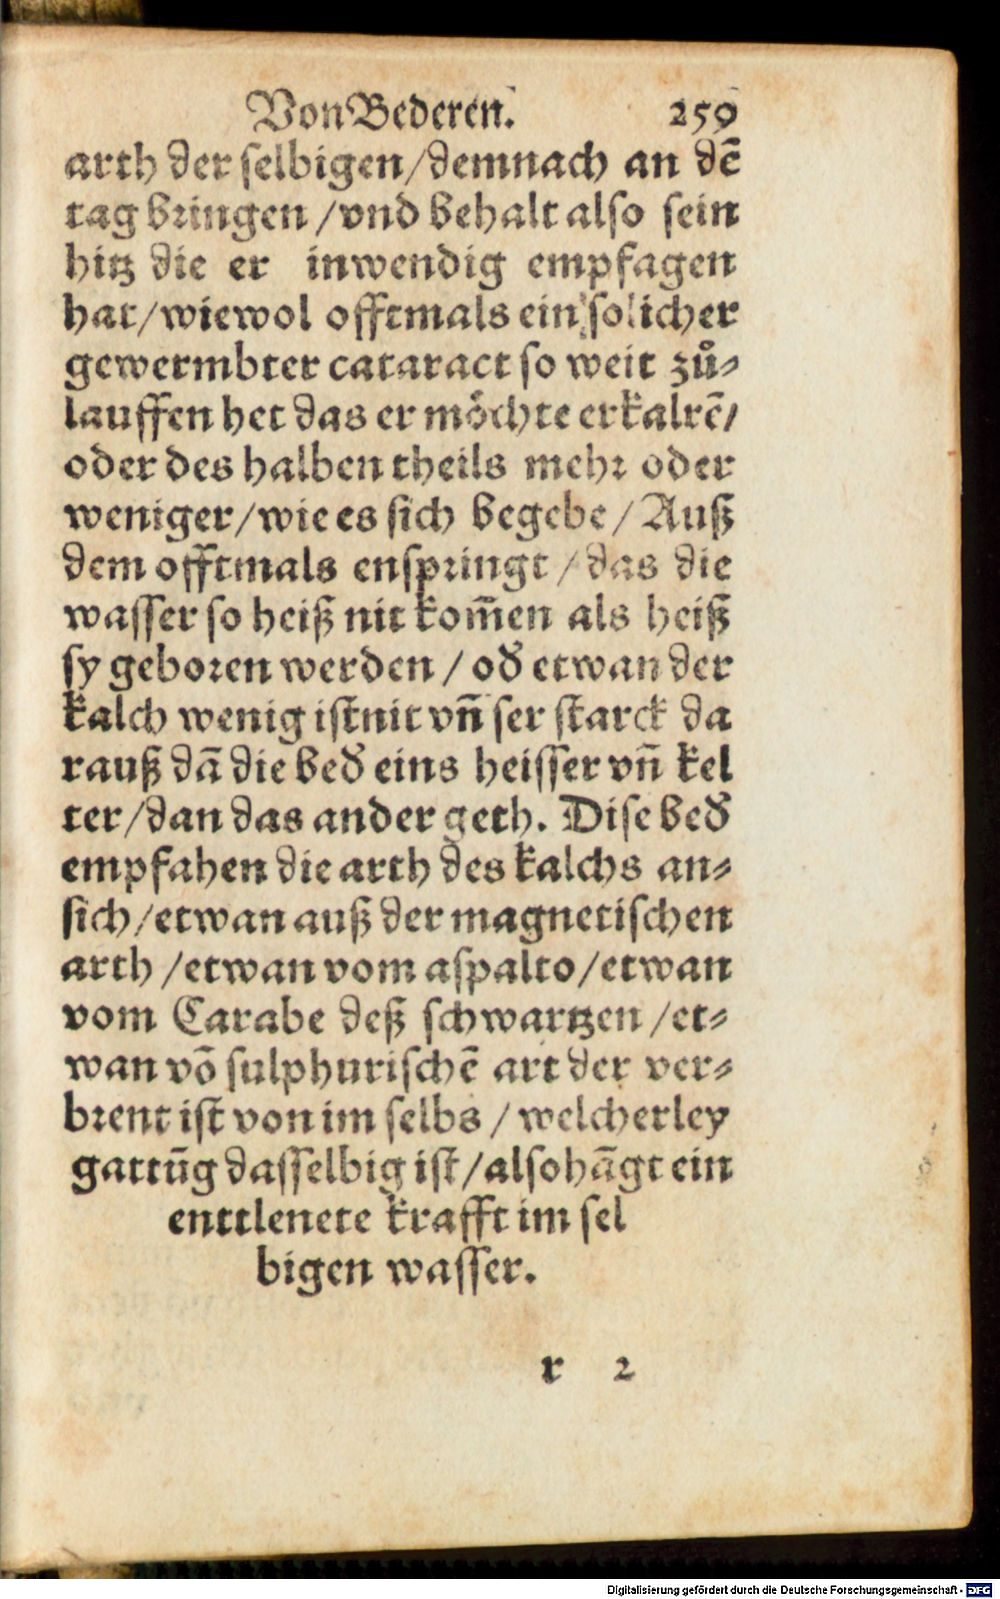 Von Bederen. 259
arth der selbigen/demnach an dē
tag bringen /vnd behalt also sein
hitz die er inwendig empfagen
hat/wiewol offtmals ein solicher
gewermbter cataract so weit zů-
lauffen het das er möchte erkaltē/
oder des halben theils mehr oder
weniger/wie es sich begebe/Auß
dem offtmals enspringt/das die
wasser so heiß nit kom̄en als heiß
sy geboren werden/od̕ etwan der
kalch wenig ist nit vn̄ ser starck da
rauß dā die bed̕ eins heisser vn̄ kel
ter/dan das ander geth. Dise bed̕
empfahen die arth des kalchs an-
sich/etwan auß der magnetischen
arth/etwan vom aspalto/etwan
vom Carabe deß schwartzen/et-
wan võ sulphurischē art der ver-
brent ist von im selbs/welcherley
gattūg dasselbig ist/also hāgt ein
enttlenete krafft im sel
bigen wasser.
r 2
Digitalisierung gefördert durch die Deutsche Forschungsgemeinschaft - DFG